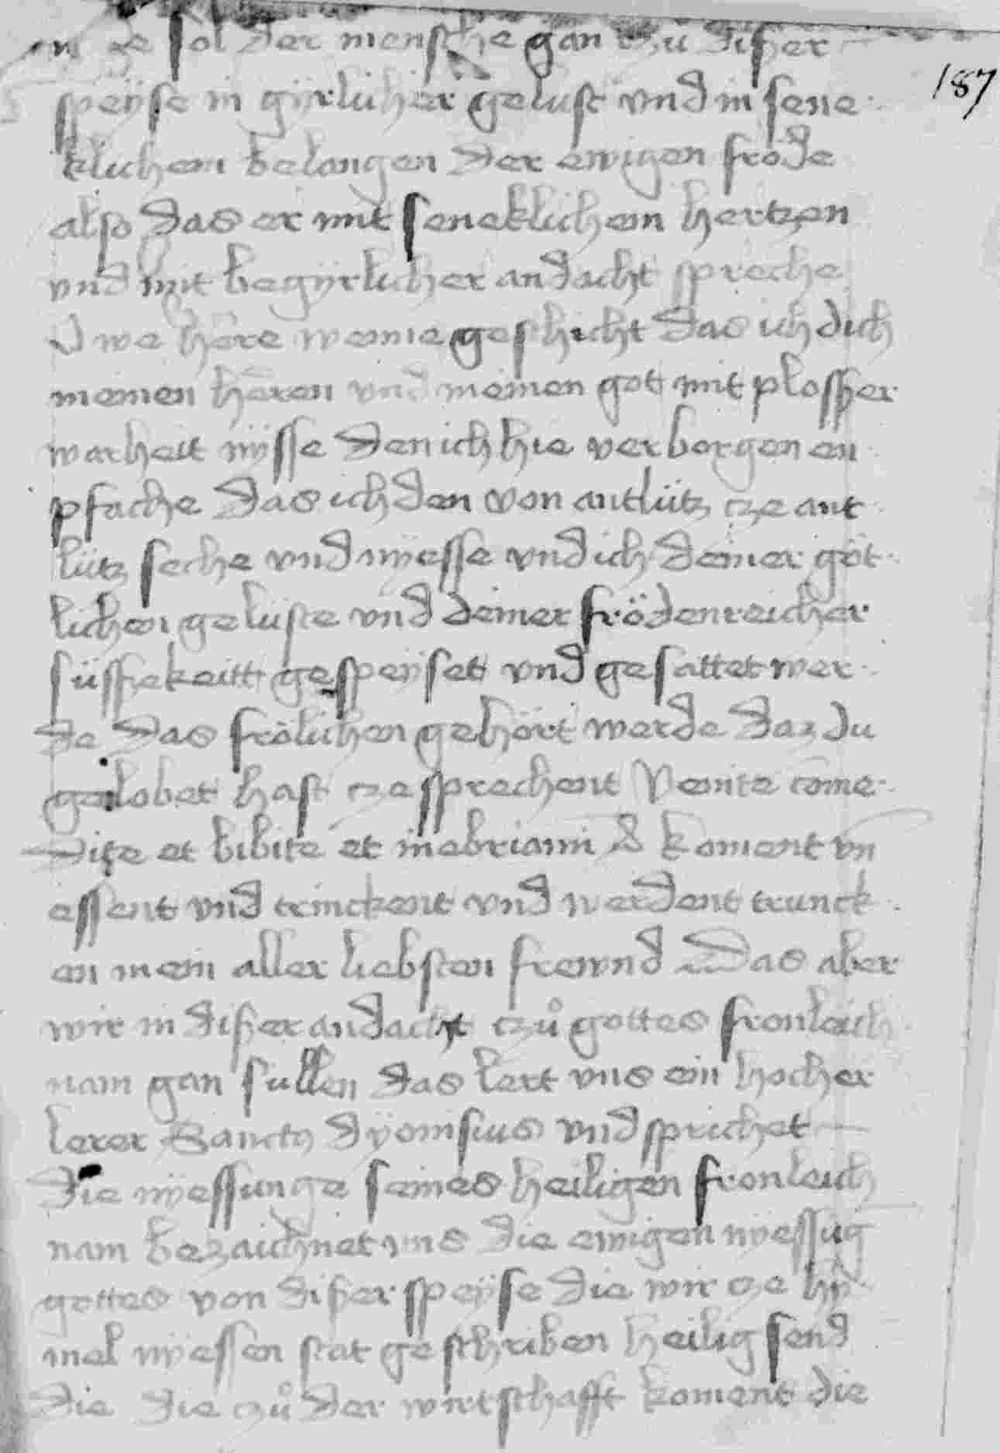 sol der mensche gan czu diser
187
speÿse in gÿrlicher gelust vnd in sene
klichem belangen der ewigen fröde
also das er mit seneklichem hertzen
vnd mit begÿrlicher andacht spreche
O we here wenne geschicht das ich dich
meinen heren vnd meinen got mit plosser
warheit nÿsse den ich hie verborgen en
pfache das ich den von antlütz cze ant
lütz seche vnd nÿesse vnd ich deiner göt
lichen geluste vnd deiner frödenreicher
süssekeitt gespeÿset vnd gesattet wer
de das frölichen gehört werde daz du
gelobet hast cze sprechent Venite come
dite et bibite et inebriamini koment vn
essent vnd trinckent vnd werdent trunck
en mein aller liebsten frewnd Das aber
wir in diser andacht czů gottes fronleich
nam gan süllen das lert vns ein hocher
lerer Sanctus dÿonisius vnd sprichet
Die nÿessunge seines heiligen fronleich
nam bezaichnet vns die ewigen nÿessūg
gottes von diser speÿse die wir cze hÿ
mel nÿessen stat geschriben heilig send
die die czů der wirtschafft koment die